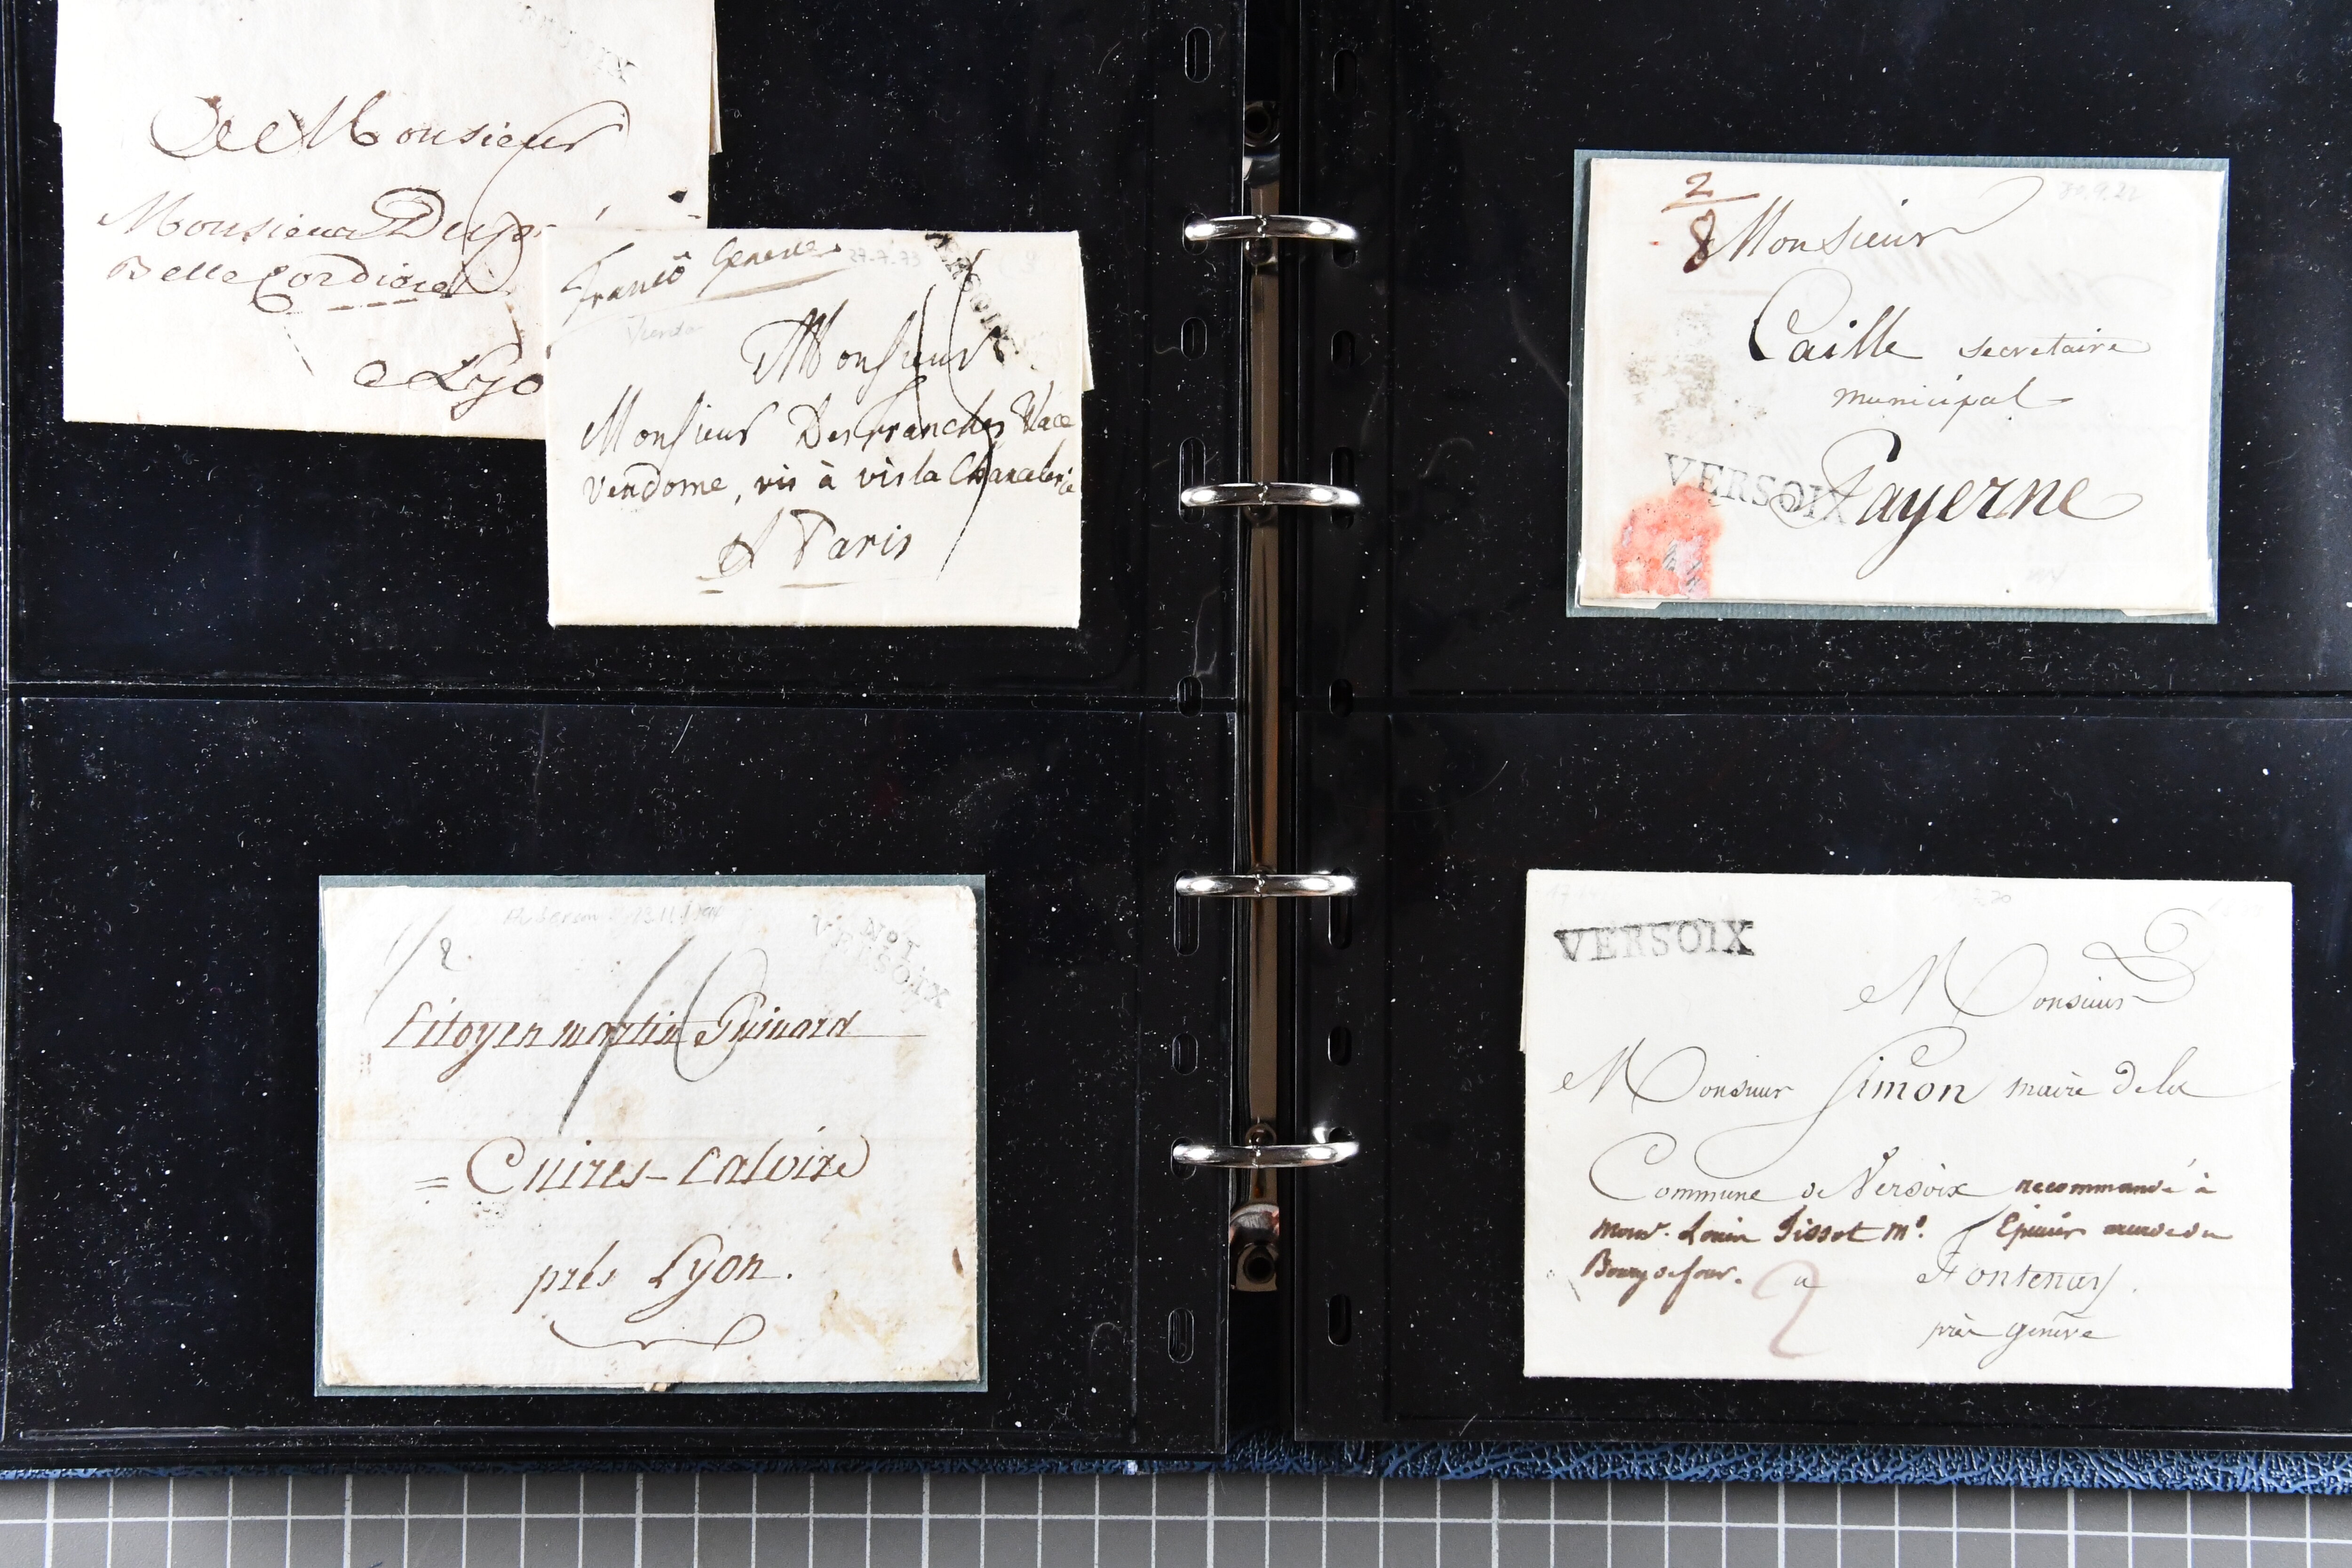 A Monsieur
Monsieur
Belle Cordiere
a Lyo
VERSOIX
franco Geneve
27.7.73
Monsieur
Monsieur Desfranches Place
Vendome, vis à vis la Chancelerie
A Paris
2
8
Monsieur
Caille secretaire
municipal
VERSOIX
Payerne
No 1
VERSOIX
Citoyen martin Guinard
= Cuires-Caluire
près Lyon.
VERSOIX
Monsieur
Monsieur Simon maire de la
Commune de Versoix recommandé à
Monsr. Louis Tissot Md. Epicier
Bourg de four. a Fontenas
2
près Genève